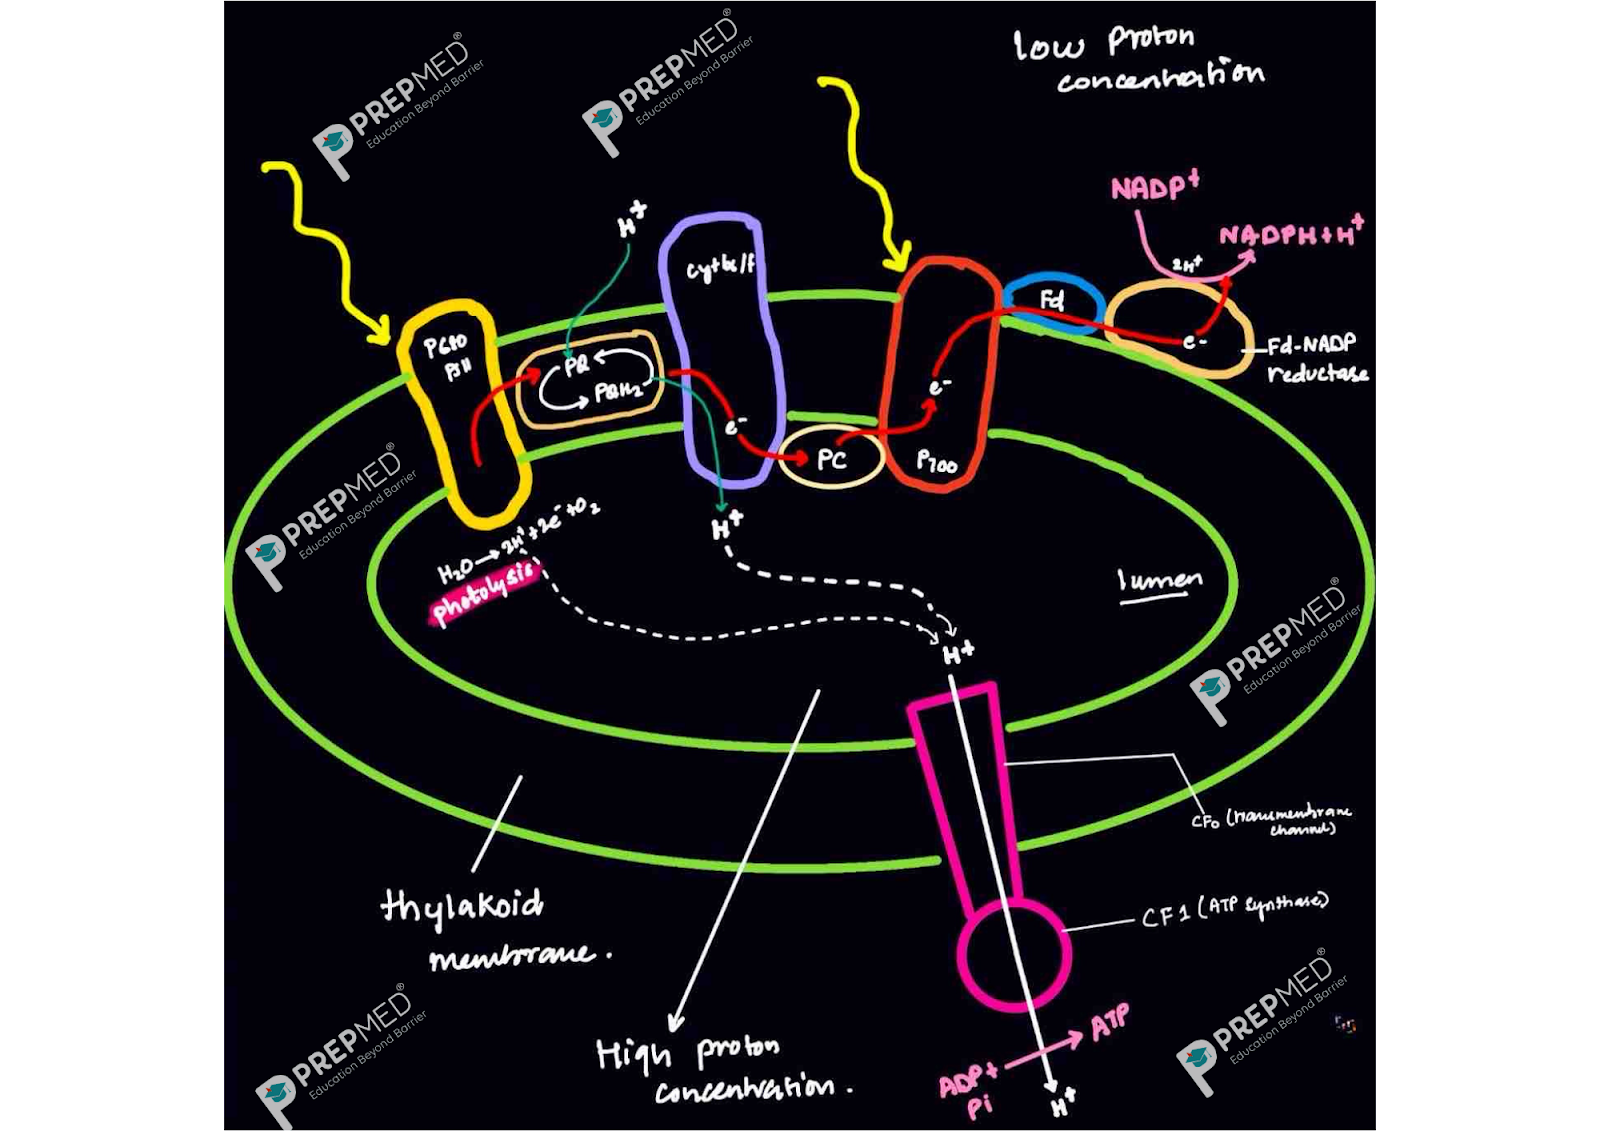 PREPMED®
Education Beyond Barrier
PREPMED®
Education Beyond Barrier
low proton
concentration
NADP+
NADPH+H+
2H+
H+
Cytb6/f
P680
PSII
PQ
PQH2
Fd
e-
Fd-NADP
reductase
e-
e-
PC
P700
PREPMED®
Education Beyond Barrier
H+
H2O→2H++2e-+O2
photolysis
lumen
H+
PREPMED®
Education Beyond Barrier
CF0 (transmembrane
channel)
thylakoid
membrane.
CF1 (ATP synthase)
PREPMED®
Education Beyond Barrier
PREPMED®
Education Beyond Barrier
High proton
concentration.
ATP
ADP+
Pi
H+